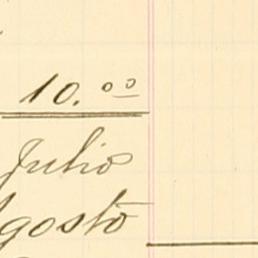 10.00
Julio
Agosto